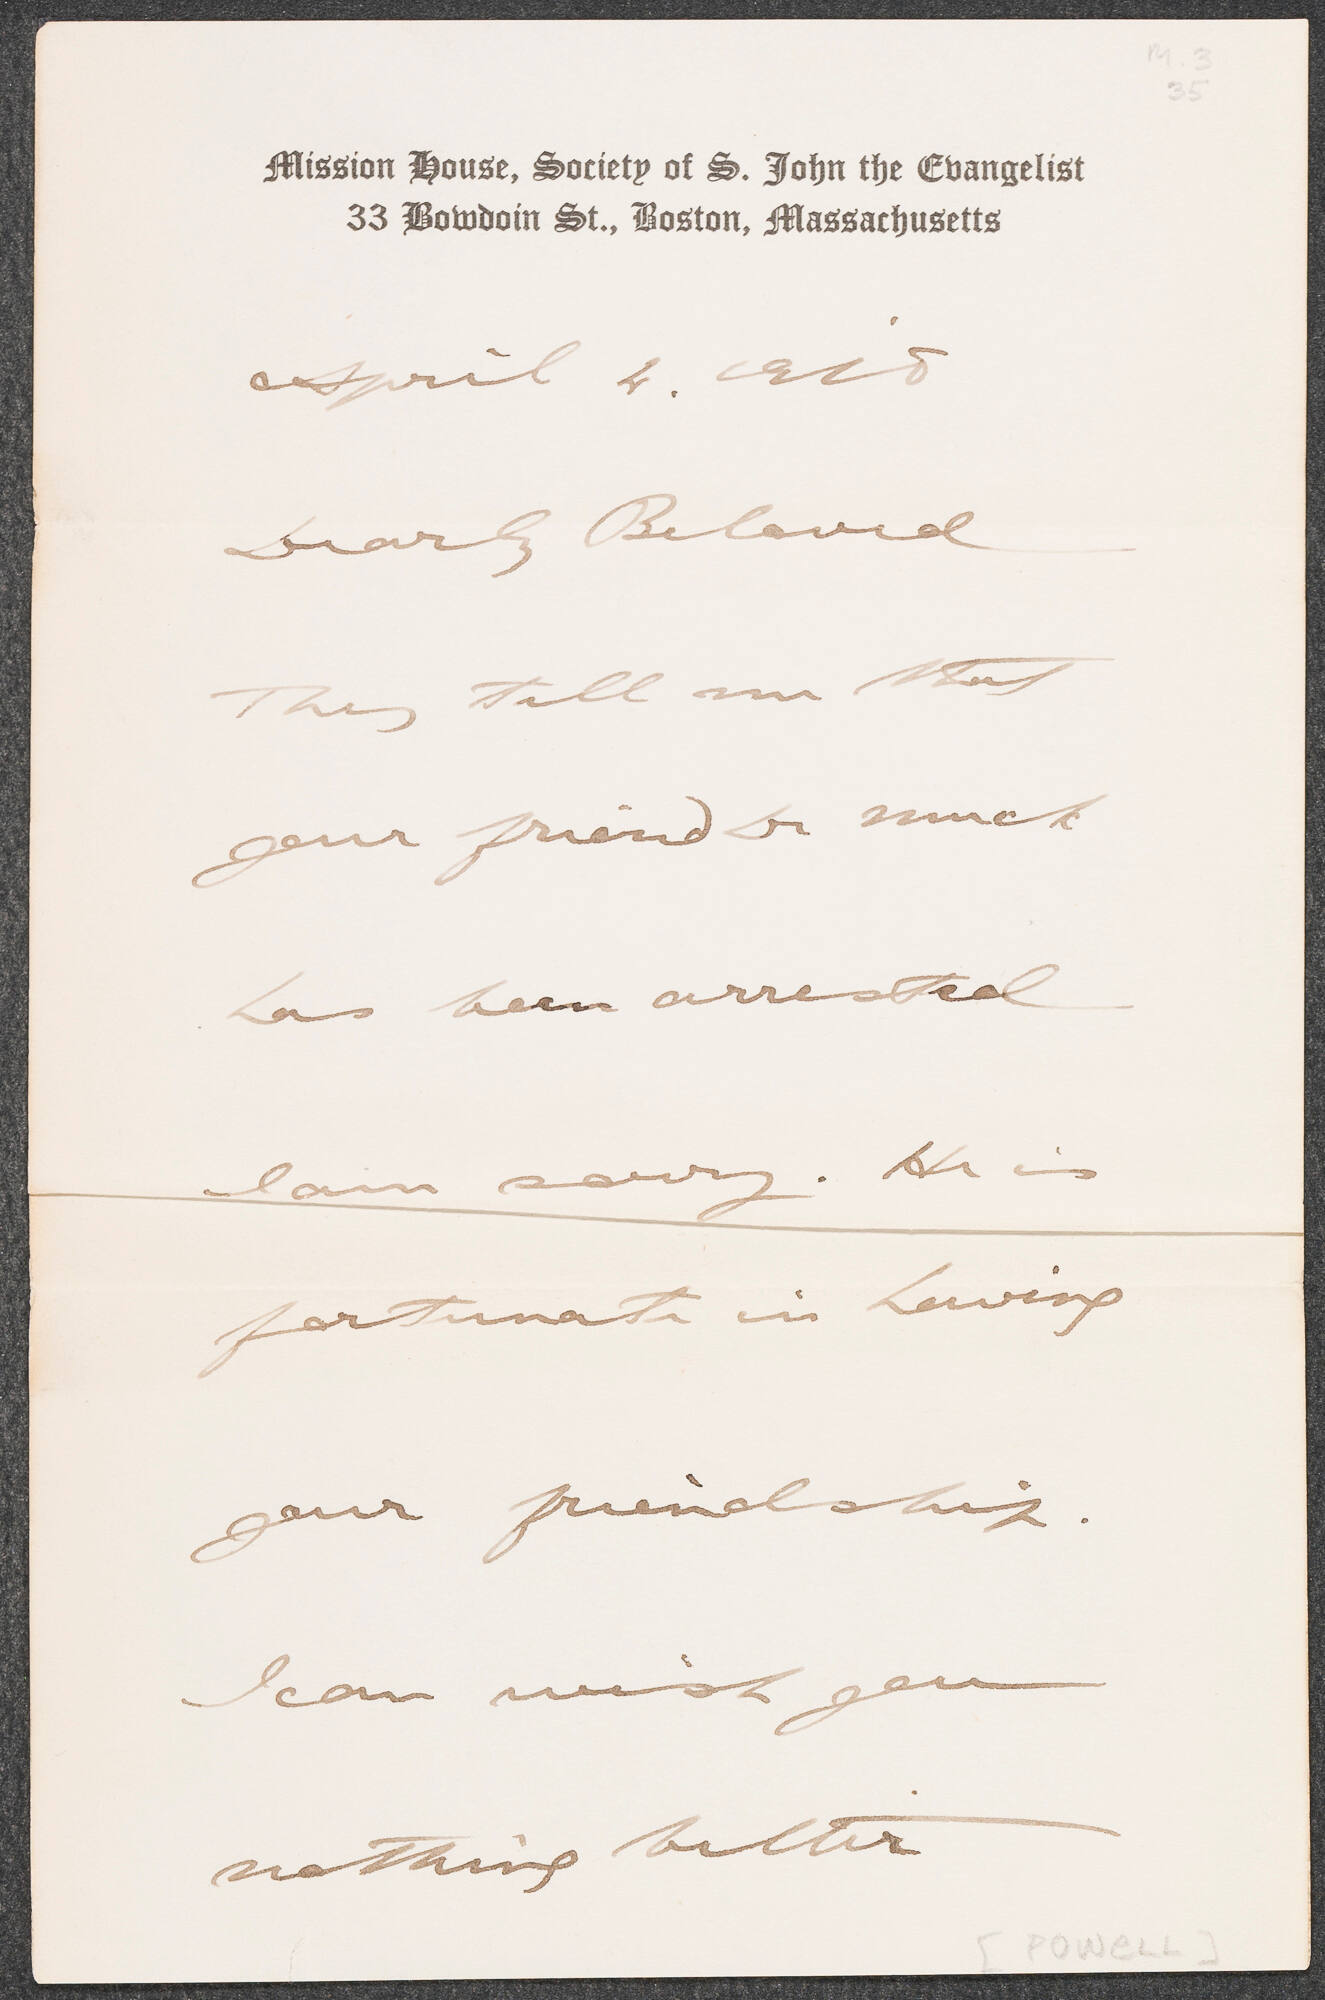 M. 3
35
Mission House, Society of S. John the Evangelist
33 Bowdoin St., Boston, Massachusetts
April 2. 1918
Dearly Beloved
They tell me that
your friend Dr Muck
has been arrested
I am sorry. He is
fortunate in having
your friendship.
I can wish you
nothing better
[ POWELL ]